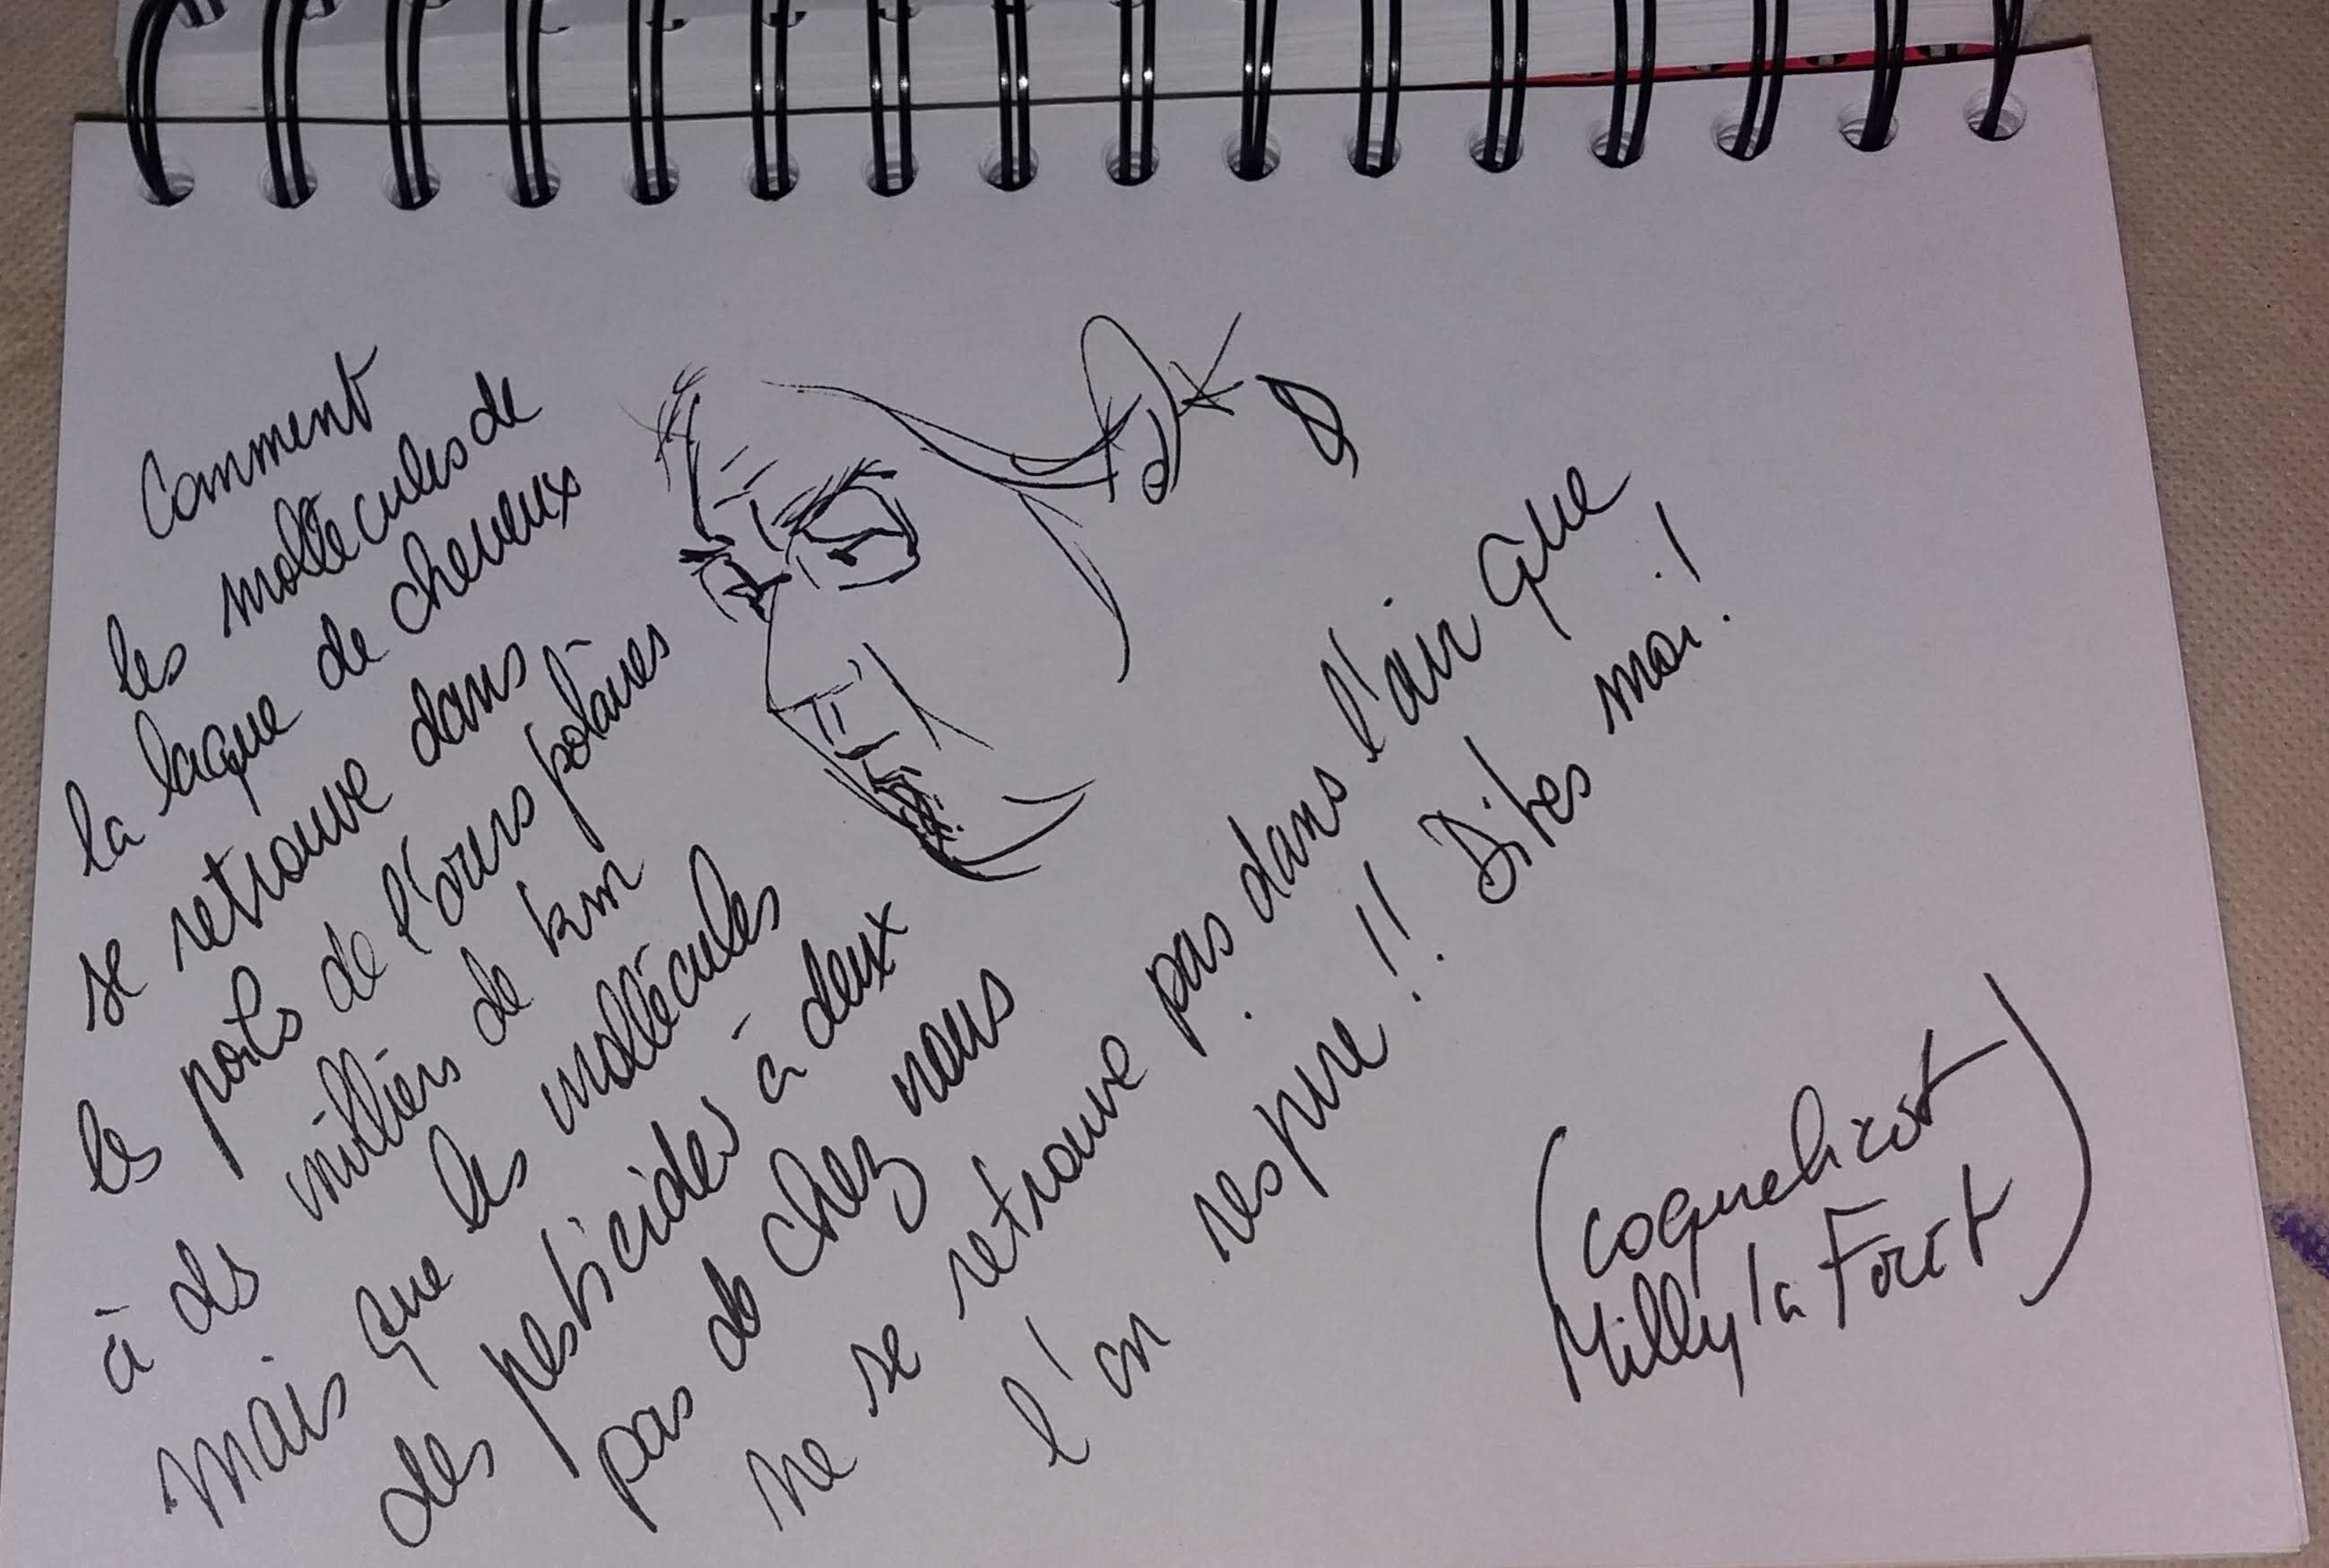 Comment
les mollécules de
la laque de cheveux
se retrouve dans
les poils de l'ours polaires
à des milliers de km
mais que les mollécules
des pesticides à deux
pas de chez nous
ne se retrouve pas dans l'air que
l'on respire !! Dites moi !!
(coquelicot
Milly la Forêt)